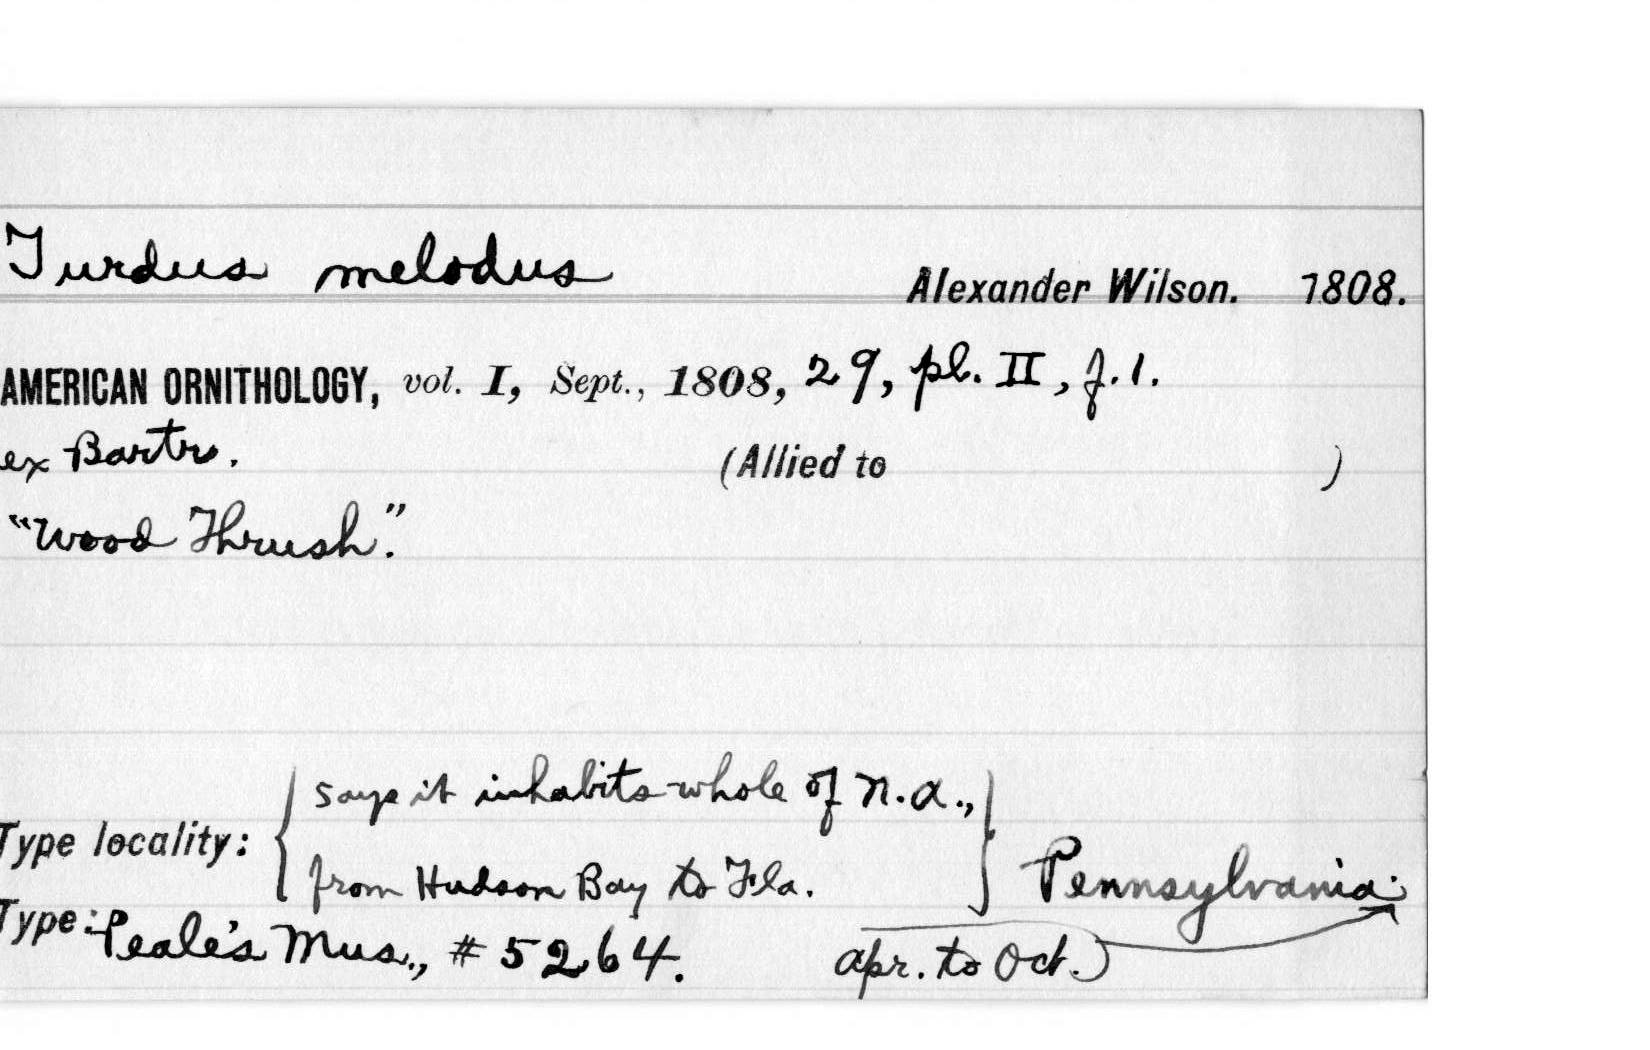 Turdus melodus Alexander Wilson. 1808.
AMERICAN ORNITHOLOGY, vol. I, Sept., 1808, 29, pl. II, f. 1.
ex Bartr. (Allied to )
"Wood Thrush."
says it inhabits whole of n.a.,
Type locality: { } Pennsylvania.
from Hudson Bay to Fla.
Type: Peale's Mus., # 5264. apr. to Oct.)